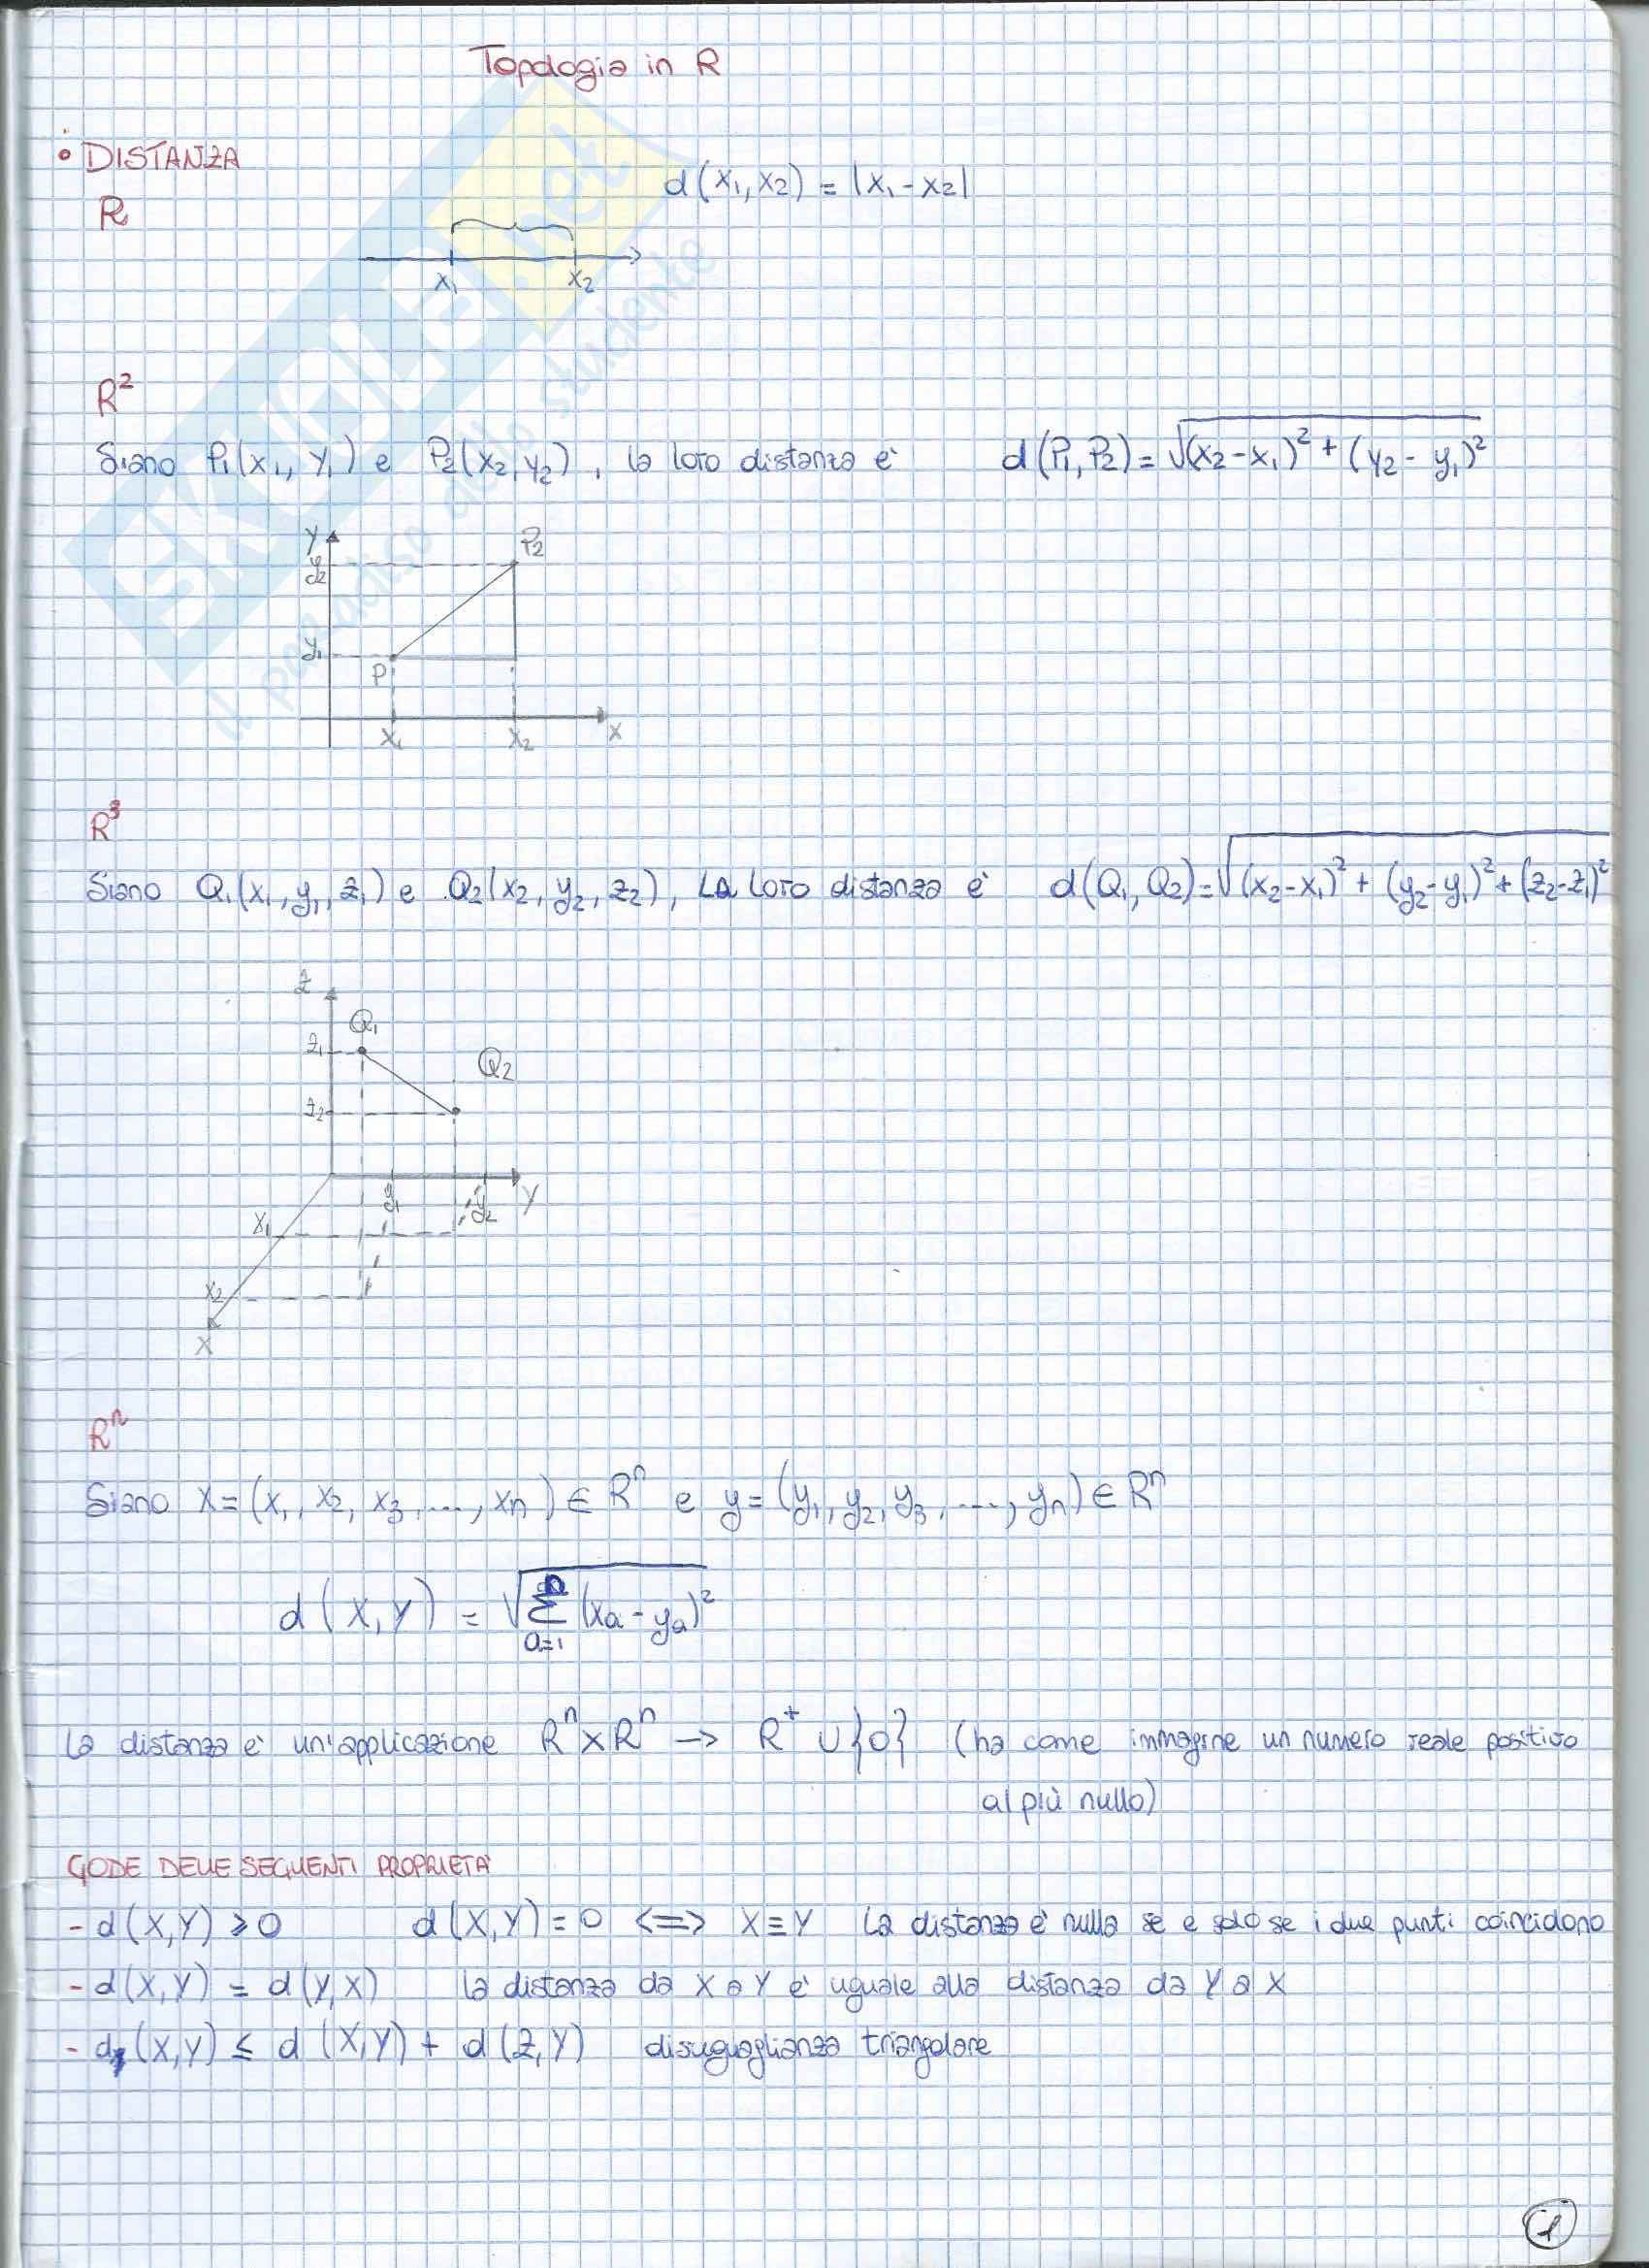 Topologia in R
• DISTANZA
R
d(x₁, x₂) = |x₁ - x₂|
x₁ x₂
R²
Siano P₁(x₁, y₁) e P₂(x₂, y₂), la loro distanza è d(P₁, P₂) = √(x₂-x₁)² + (y₂ - y₁)²
y
P₂
y₂
y₁
P₁
x₁ x₂ x
R³
Siano Q₁(x₁, y₁, z₁) e Q₂(x₂, y₂, z₂), La loro distanza è d(Q₁, Q₂) = √(x₂-x₁)² + (y₂-y₁)² + (z₂-z₁)²
z
Q₁
z₁
Q₂
z₂
y₁ y₂ y
x₁
x₂
x
Rⁿ
Siano x = (x₁, x₂, x₃, ..., xₙ) ∈ Rⁿ e y = (y₁, y₂, y₃, ..., yₙ) ∈ Rⁿ
d(x, y) = √ⁿΣₐ₌₁ (xₐ - yₐ)²
la distanza è un'applicazione Rⁿ x Rⁿ → R⁺ ∪ {0} (ha come immagine un numero reale positivo
al più nullo)
GODE DELLE SEGUENTI PROPRIETÀ
- d(x, y) ≥ 0 d(x, y) = 0 <=> x ≡ y la distanza è nulla se e solo se i due punti coincidono
- d(x, y) = d(y, x) la distanza da x a y è uguale alla distanza da y a x
- d(x, y) ≤ d(x, y) + d(z, y) disuguaglianza triangolare
1
SKUOLA.net
il paradiso dello studente